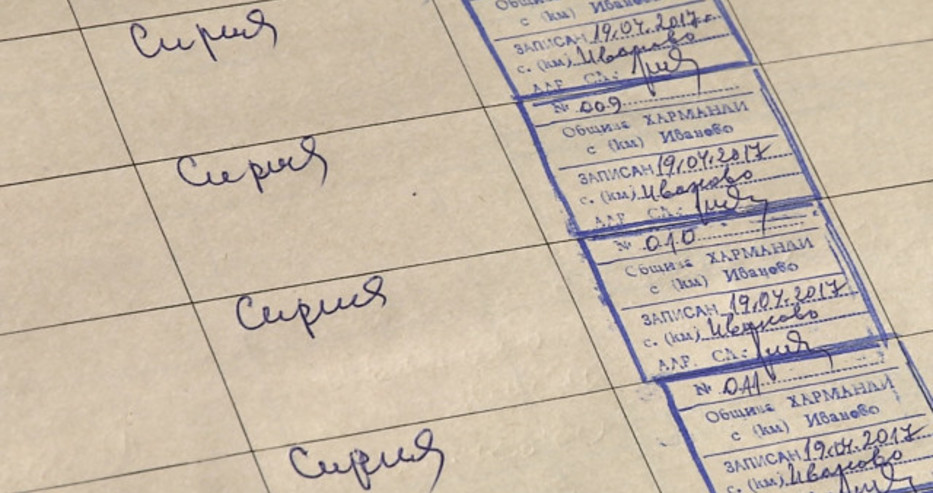 Сирия
Община ХАРМАНЛИ
с (км) Иваново
ЗАПИСАН 19.04.2017г.
с. (км) Иваново
АДР. СЛ.:
Сирия
№ 009
Община ХАРМАНЛИ
с (км) Иваново
ЗАПИСАН 19.04.2017
с. (км) Иваново
АДР. СЛ.:
Сирия
№ 010
Община ХАРМАНЛИ
с (км) Иваново
ЗАПИСАН 19.04.2017
с. (км) Иваново
АДР. СЛ.:
Сирия
№ 011
Община ХАРМАНЛИ
с (км) Иваново
ЗАПИСАН 19.04.2017
с. (км) Иваново